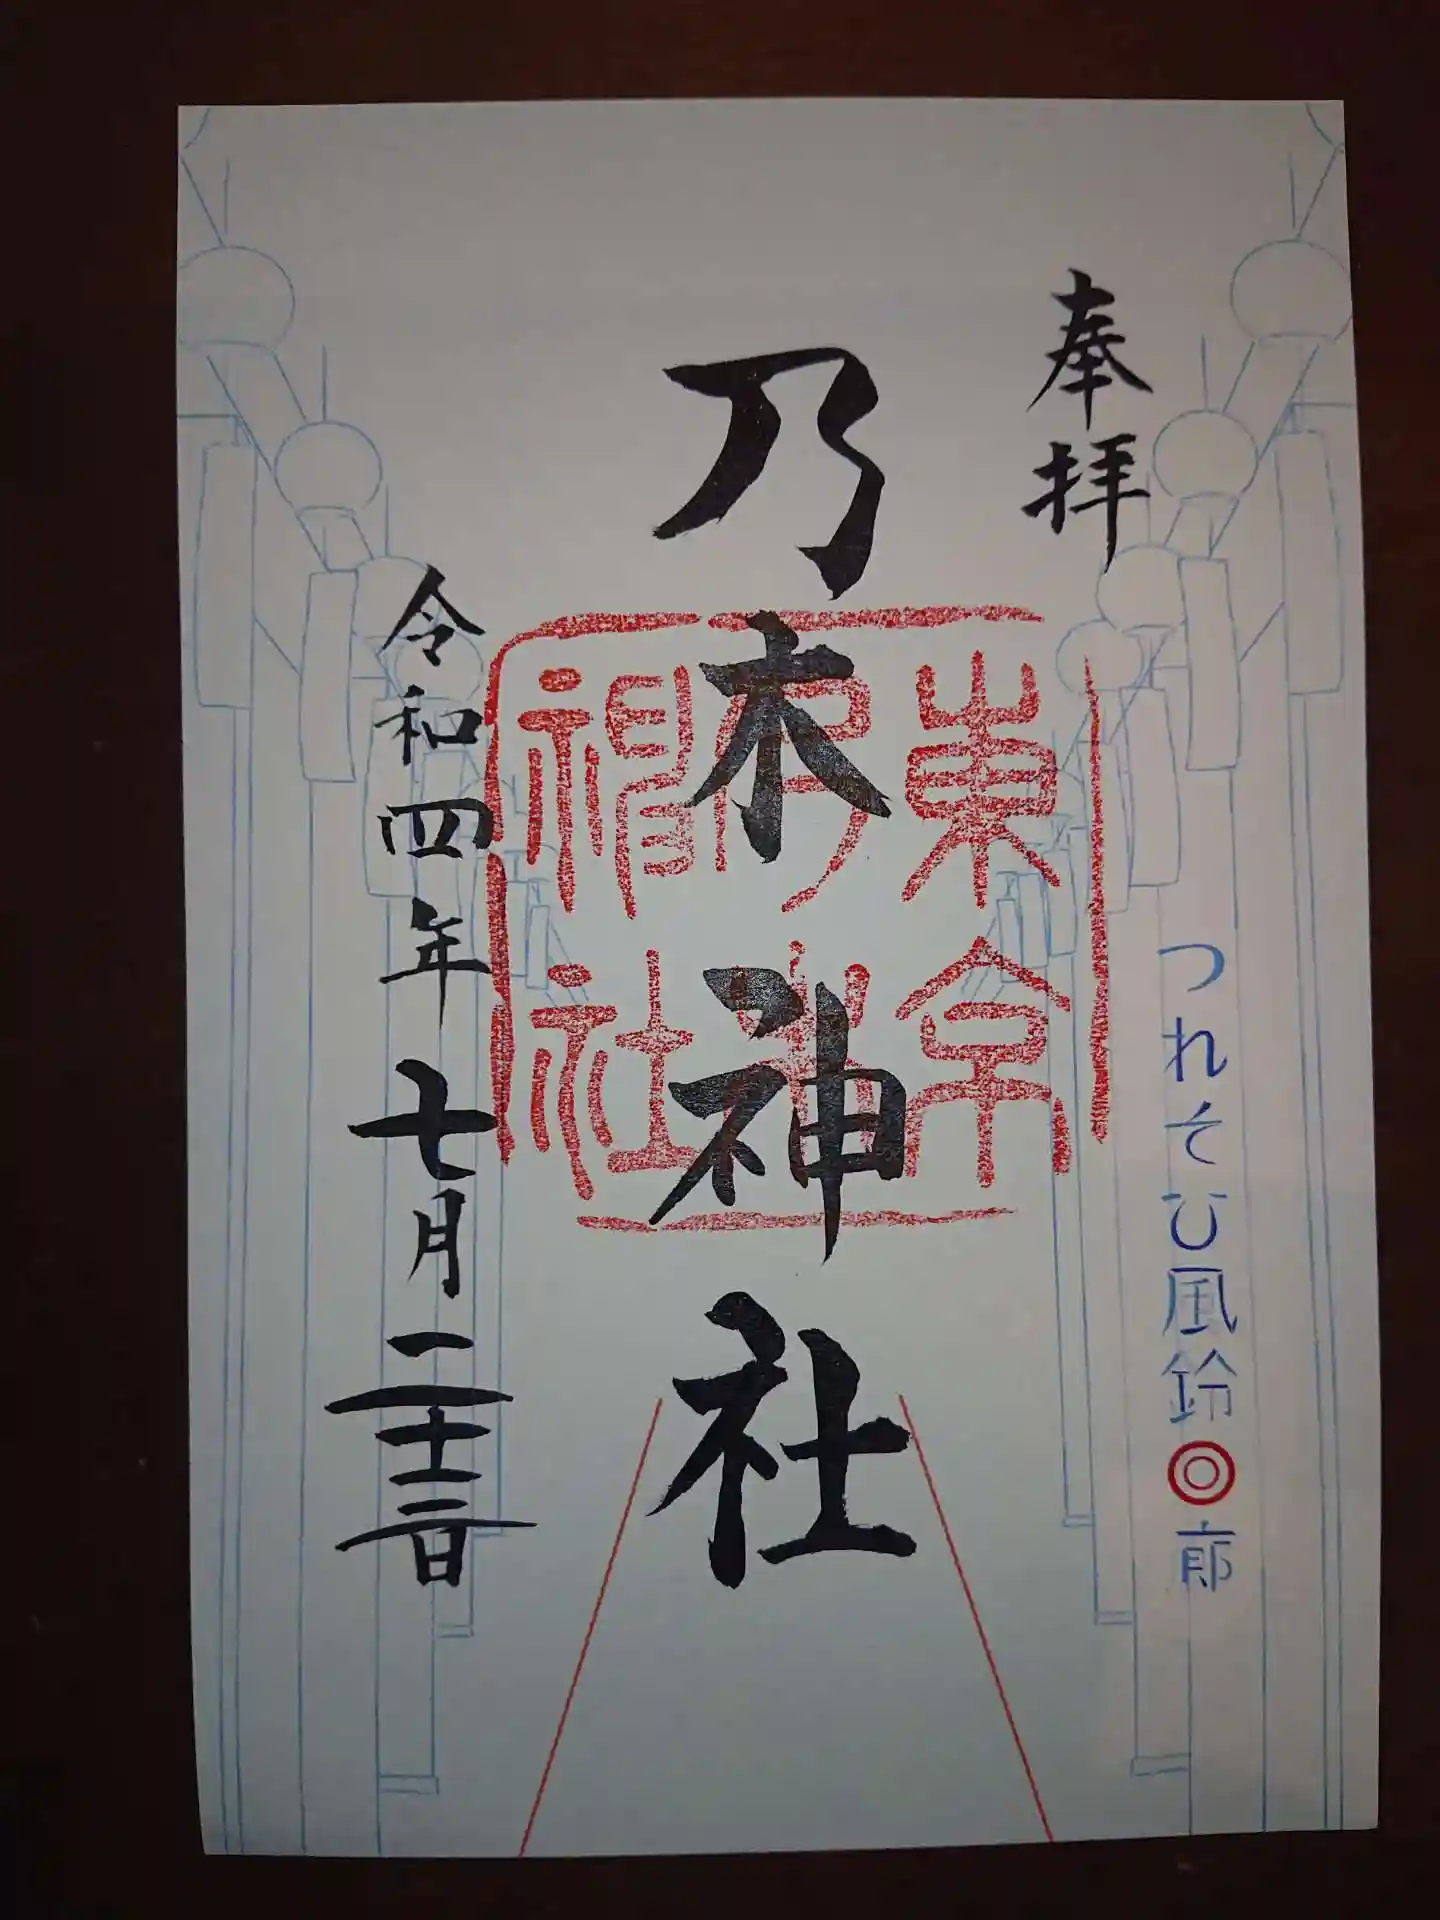 奉拝
つれそひ風鈴◎廊
乃木神社
東京
乃木
神社
令和四年七月二十三日